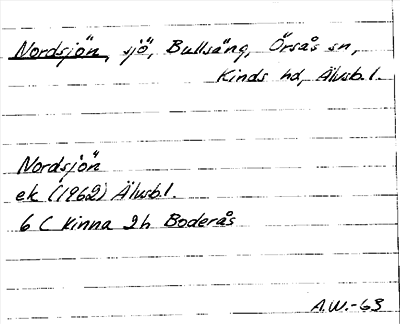 Nordsjön, sjö, Bullsäng, Örsås sn,
Kinds hd, Älvsb.l.
Nordsjön
ek (1962) Älvsb.l.
6 C Kinna 2h Boderås
A.W.-63